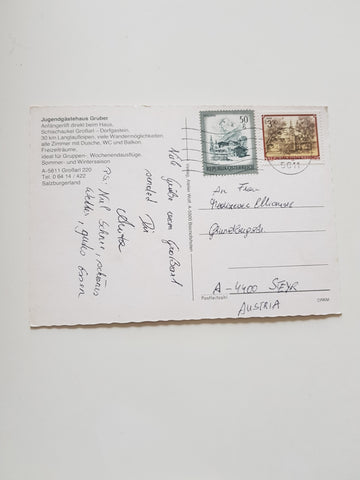 Jugendgästehaus Gruber
Anfängerlift direkt beim Haus,
Schischaukel Großarl – Dorfgastein.
30 km Langlaufloipen, viele Wandermöglichkeiten,
alle Zimmer mit Dusche, WC und Balkon,
Freizeiträume,
ideal für Gruppen-, Wochenendausflüge,
Sommer- und Wintersaison
A-5611 Großarl 220
Tel. 0 64 14 / 422
Salzburgerland
Viele Grüße vom Großarl
sendet Dir
PS: Viel Schnee, schönes
Wetter, gutes Essen
50
REPUBLIK ÖSTERREICH
5611
An Frau
A-4400 STEYR
AUSTRIA
Postleitzahl